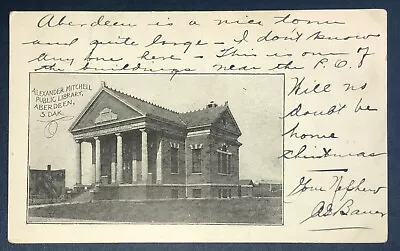 Aberdeen is a nice town
and quite large - I don't know
any one here - This is one of
the buildings near the P.O.
ALEXANDER MITCHELL
PUBLIC LIBRARY,
ABERDEEN,
S. DAK.
Will no
doubt be
home
christmas
Your Nephew
Bauer